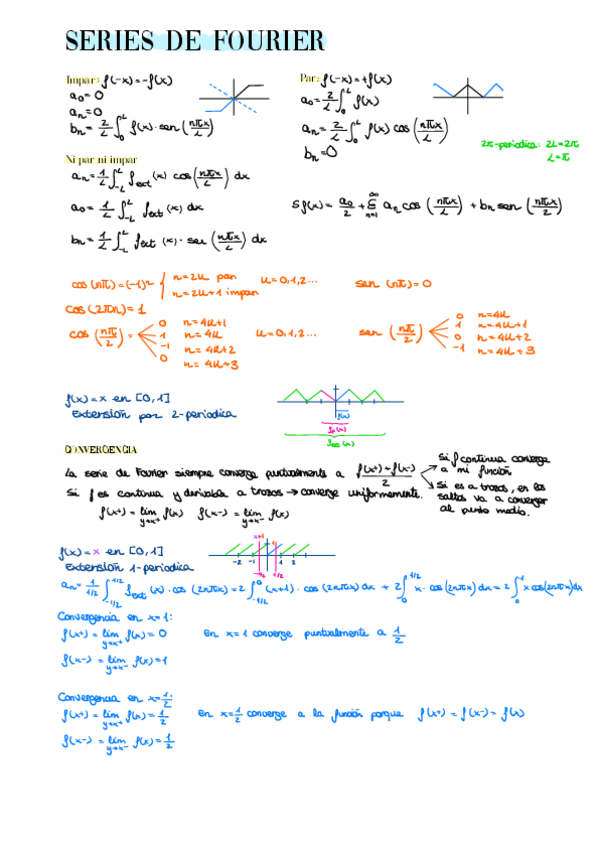 SERIES DE FOURIER
Impar: f(-x)=-f(x)
a₀=0
aₙ=0
bₙ= 2/L ∫₀ᴸ f(x)·sen(nπx/L)
Par: f(-x)=+f(x)
a₀= 2/L ∫₀ᴸ f(x)
aₙ= 2/L ∫₀ᴸ f(x) cos(nπx/L)
bₙ=0
2π-periodica: 2L=2π
L=π
Ni par ni impar
aₙ= 1/L ∫₋ʟᴸ fext(x) cos(nπx/L) dx
a₀= 1/L ∫₋ʟᴸ fext(x) dx
bₙ= 1/L ∫₋ʟᴸ fext(x)·sen(nπx/L) dx
Sf(x)= a₀/2 + Σₙ₌₁^∞ aₙ cos(nπx/L) + bₙ sen(nπx/2)
cos(nπ)=(-1)ⁿ { n=2k par
n=2k+1 impar
k=0,1,2...
sen(nπ)=0
cos(2πn)=1
cos(nπ/2)=
0 n=4k+1
1 n=4k
-1 n=4k+2
0 n=4k+3
k=0,1,2...
sen(nπ/2)
0 n=4k
1 n=4k+1
0 n=4k+2
-1 n=4k+3
f(x)=x en [0,1]
Extensión par 2-periodica
f(x)
fp(x)
CONVERGENCIA
La serie de Fourier siempre converge puntualmente a (f(x+)+f(x-))/2
Si f continua converge
a mi función
Si es a trozos, en los
saltos va a converger
al punto medio.
Si f es continua y derivable a trozos → converge uniformemente.
f(x+)= lím y→x+ f(x) f(x-)= lím y→x- f(x)
f(x)=x en [0,1]
Extensión 1-periodica
x+1
-2 -1 1 2
-1/2 1/2
aₙ= 1/(1/2) ∫₋₁/₂^1/2 fext(x)·cos(2nπx)=2∫₋₁/₂^0 (x+1)·cos(2nπx)dx + 2∫₀^1/2 x·cos(2nπx)dx=2∫₀^1 x cos(2nπx)dx
Convergencia en x=1:
f(x+)= lím y→x+ f(x)=0
en x=1 converge puntualmente a 1/2
f(x-)= lím y→x- f(x)=1
Convergencia en x=1/2:
f(x+)= lím y→x+ f(x)=1/2
en x=1/2 converge a la función porque f(x+)=f(x-)=f(x)
f(x-)= lím y→x- f(x)=1/2